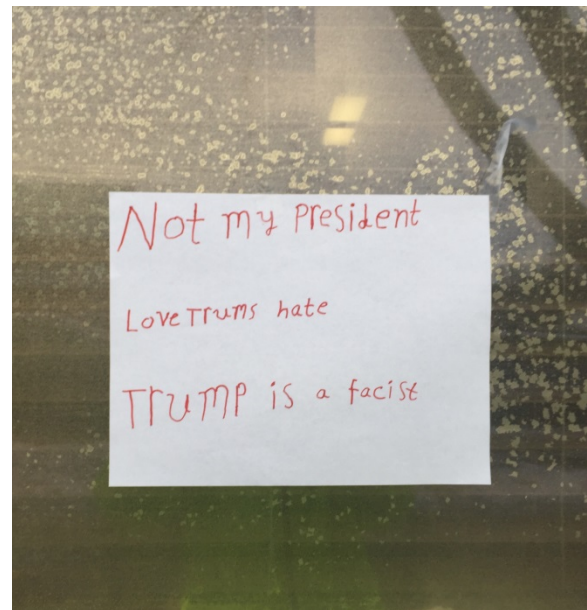 Not my President
Love Trums hate
Trump is a facist